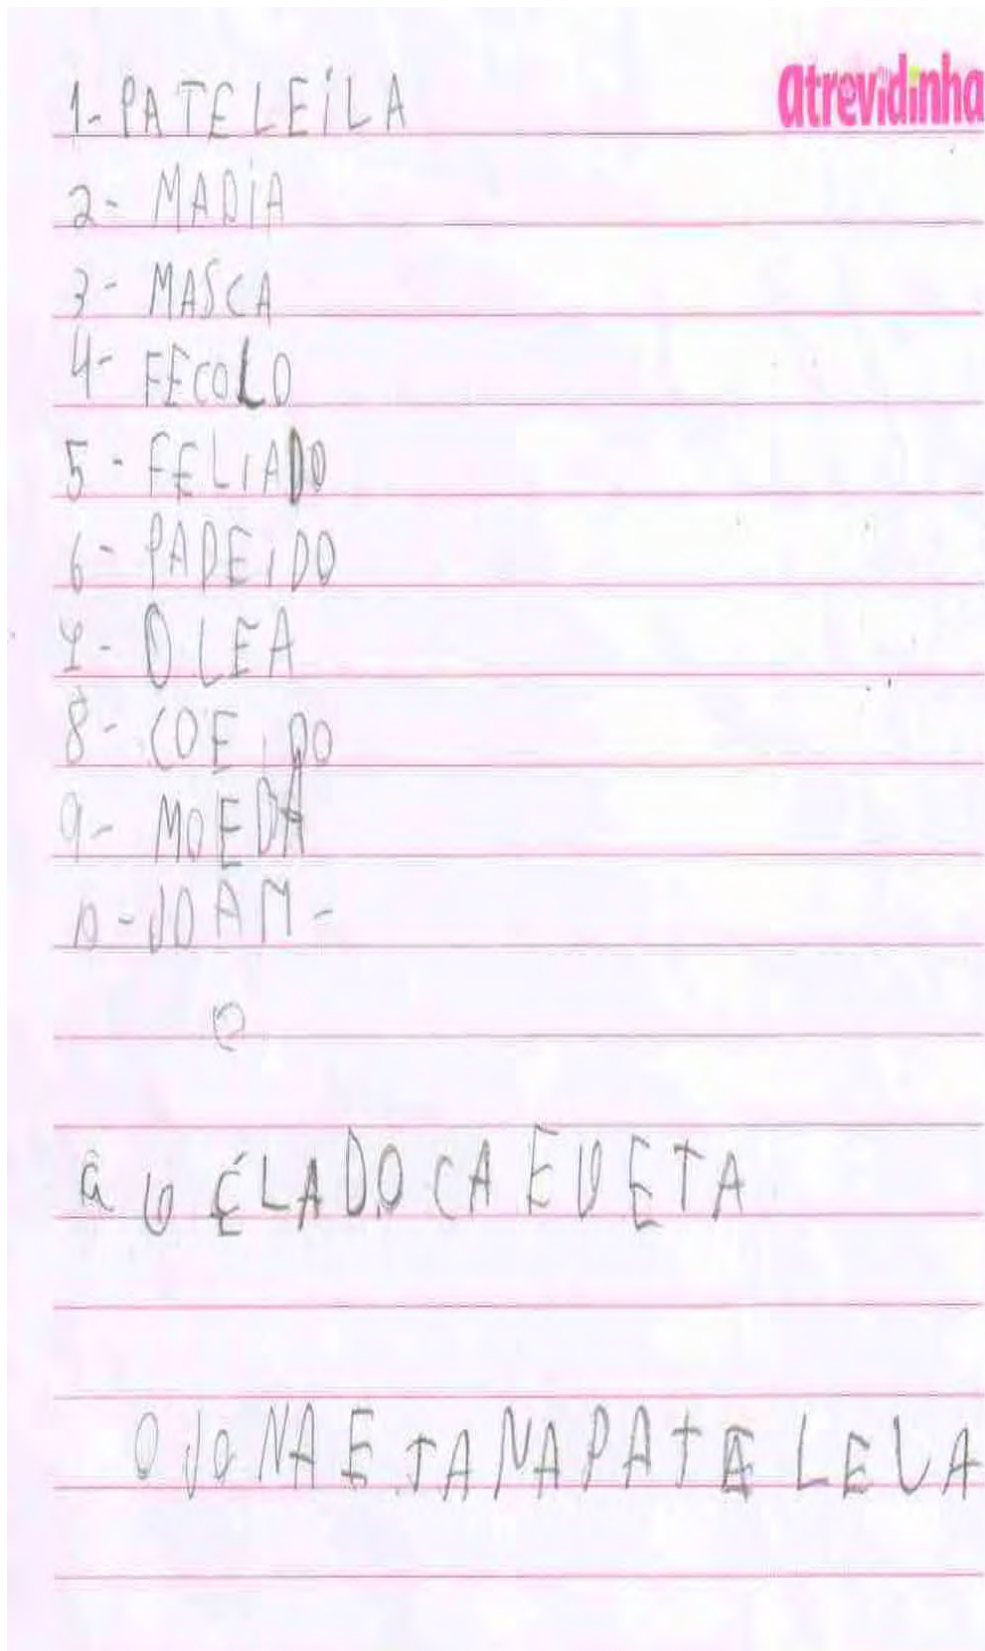 atrevidinha
1- PATELEILA
2- MADIA
3- MASCA
4- FECOLO
5- FELIADO
6- PADEIDO
7- OLEA
8- COEIDO
9- MOEDA
10- JOAM-
O
ELADOCAEUETA
O JONAETANAPATELELA